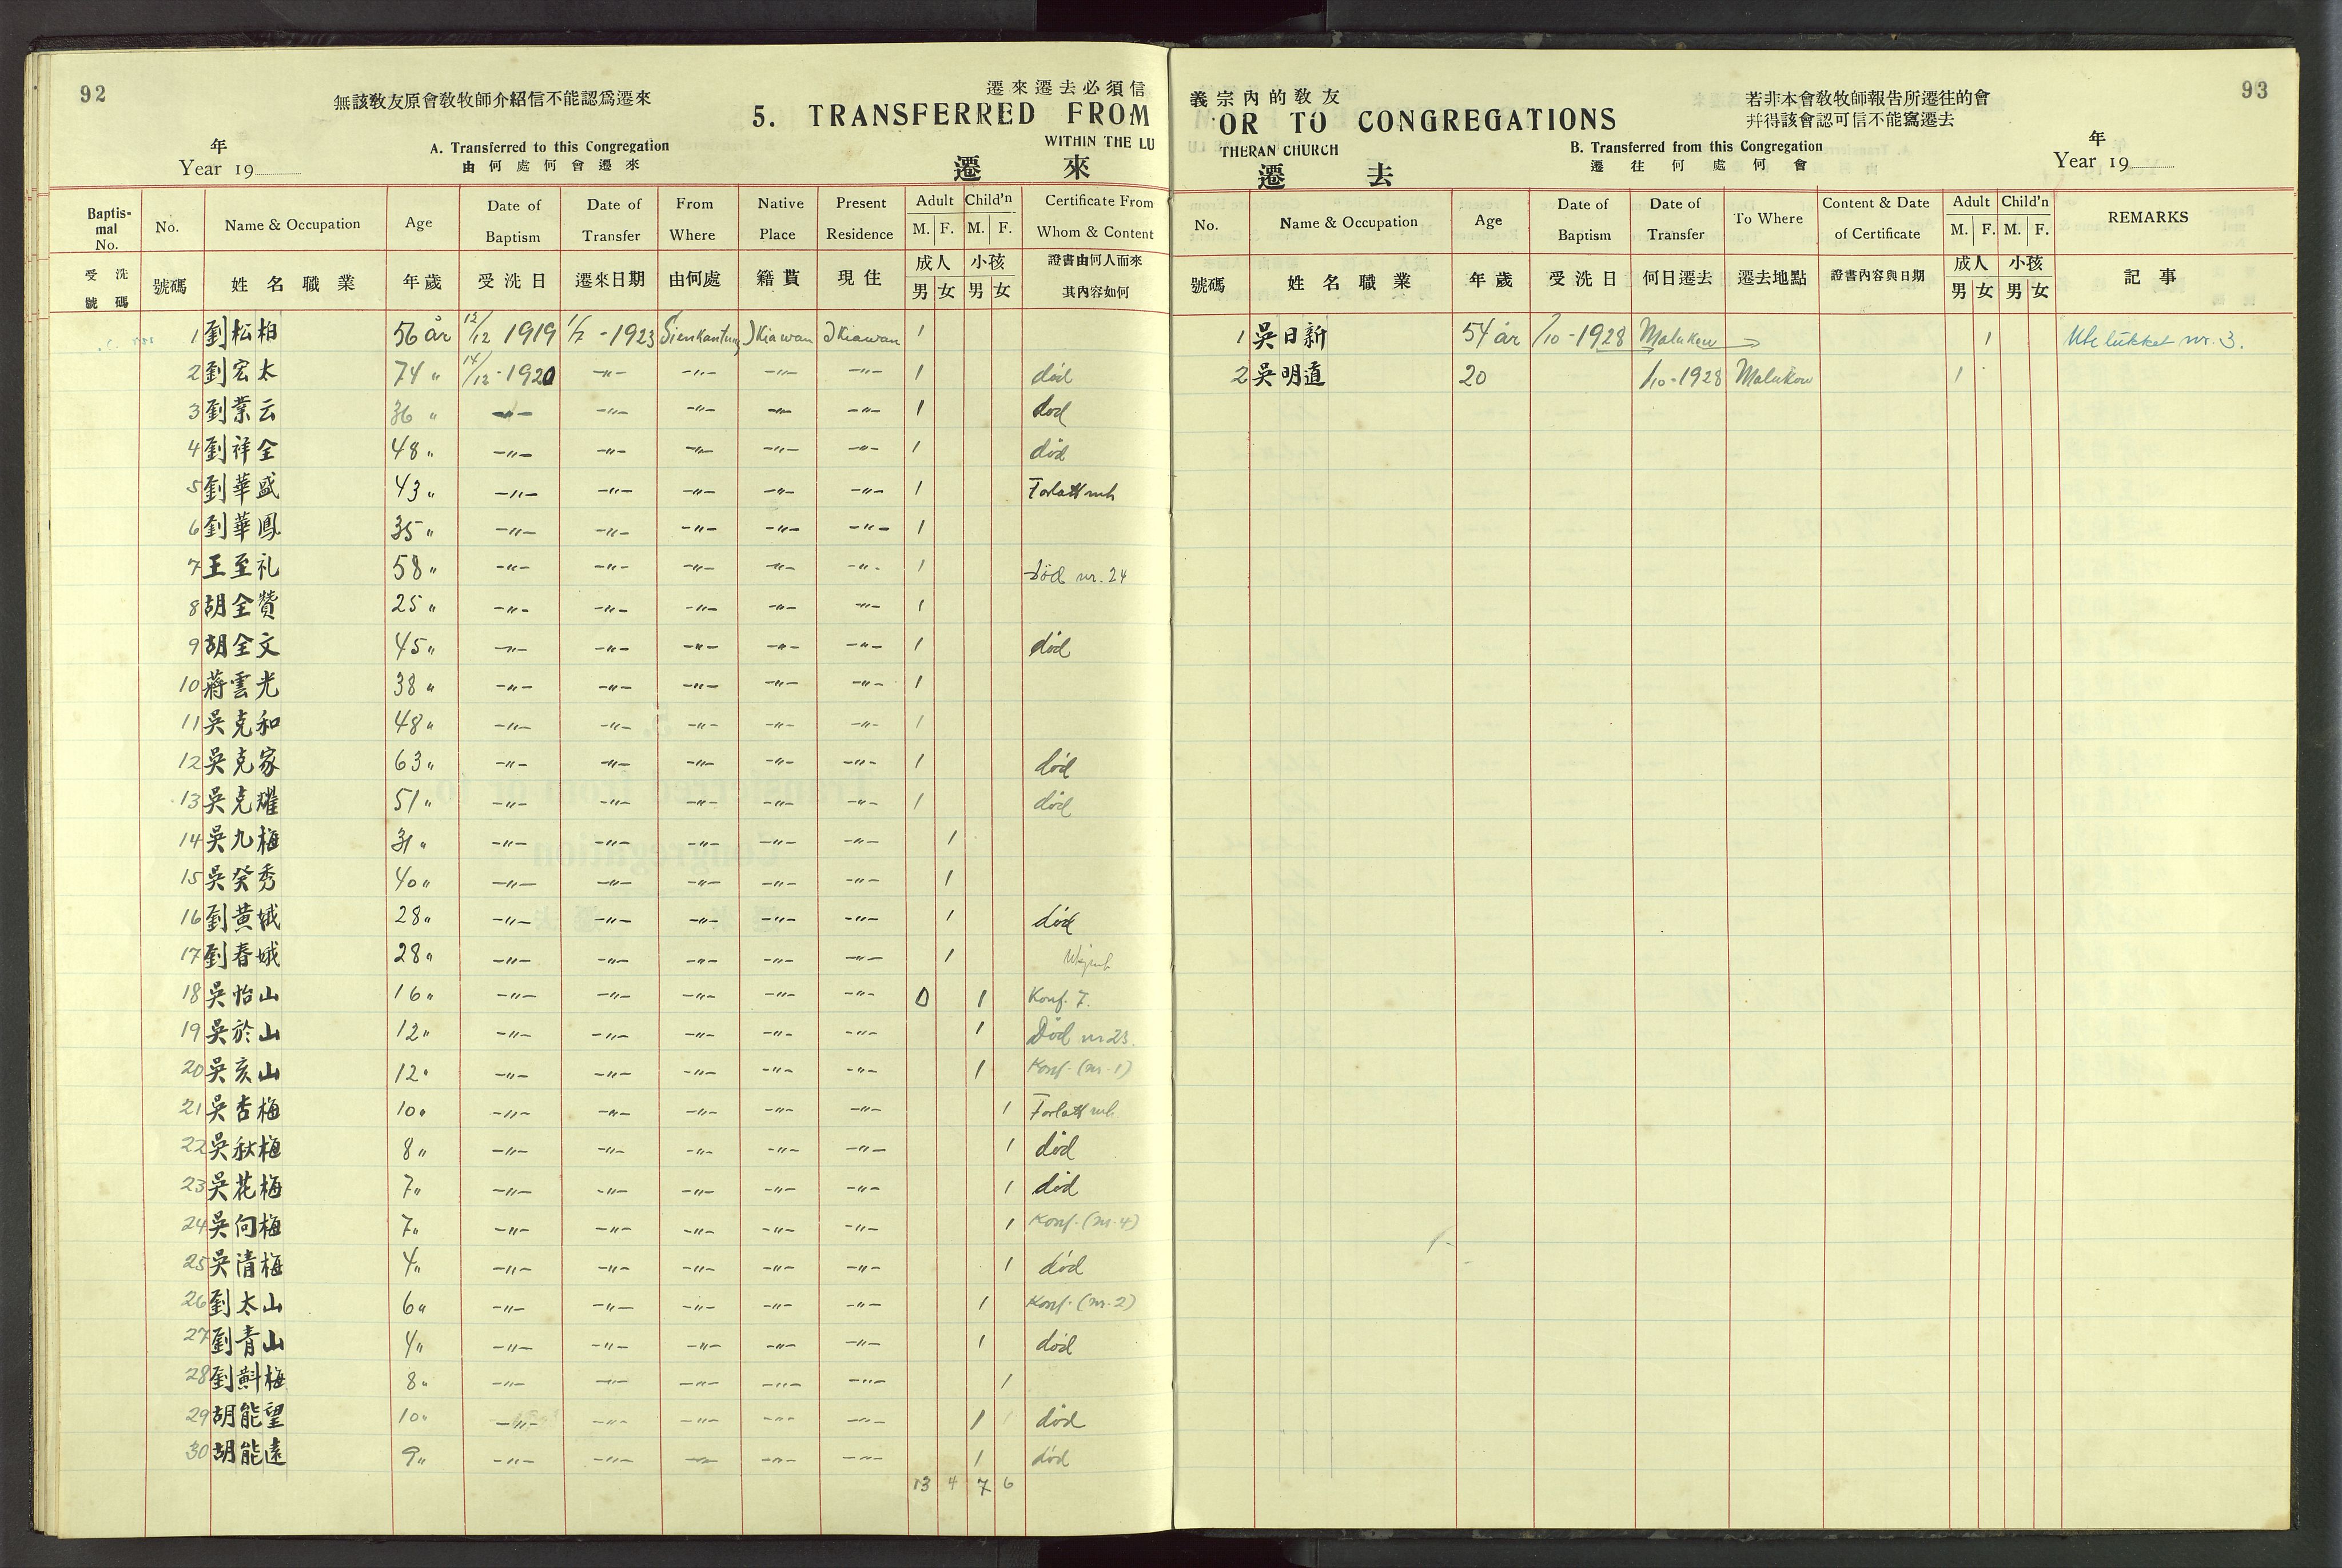 92
無該教友原會教牧師介紹信不能認爲遷來
遷來遷去必須信
5. TRANSFERRED FROM
年
Year 19
A. Transferred to this Congregation
由何處何會遷來
WITHIN THE LU
遷 來
Baptismal No. No. Name & Occupation Age Date of Baptism Date of Transfer From Where Native Place Present Residence Adult M. F. Child'n M. F. Certificate From Whom & Content
受洗號碼 號碼 姓名職業 年歲 受洗日 遷來日期 由何處 籍貫 現住 成人 男 女 小孩 男 女 證書由何人而來其內容如何
1 劉松柏 56 år 12/12 1919 1/7 -1923 Sienkantung Jkiawan Jkiawan 1
2 劉宏太 74 " 14/12-1920 -"- -"- -"- -"- 1 død
3 劉業云 36 " -"- -"- -"- -"- -"- 1 død
4 劉祥全 48 " -"- -"- -"- -"- -"- 1 død
5 劉華盛 43 " -"- -"- -"- -"- -"- 1 Forlatt mh
6 劉華鳳 35 " -"- -"- -"- -"- -"- 1
7 王至礼 58 " -"- -"- -"- -"- -"- 1 død nr. 24
8 胡全贊 25 " -"- -"- -"- -"- -"- 1
9 胡全文 45 " -"- -"- -"- -"- -"- 1 død
10 蔣雲光 38 " -"- -"- -"- -"- -"- 1
11 吳克和 48 " -"- -"- -"- -"- -"- 1
12 吳克家 63 " -"- -"- -"- -"- -"- 1 død
13 吳克耀 51 " -"- -"- -"- -"- -"- 1 død
14 吳九梅 31 " -"- -"- -"- -"- -"- 1
15 吳癸秀 40 " -"- -"- -"- -"- -"- 1
16 劉黄娥 28 " -"- -"- -"- -"- -"- 1 død
17 劉春娥 28 " -"- -"- -"- -"- -"- 1
18 吳怡山 16 " -"- -"- -"- -"- -"- 0 1 Konf. 7.
19 吳於山 12 " -"- -"- -"- -"- -"- 1 Død nr 23.
20 吳亥山 12 " -"- -"- -"- -"- -"- 1 Konf. (nr. 1)
21 吳杏梅 10 " -"- -"- -"- -"- -"- 1 Forlatt mh
22 吳秋梅 8 " -"- -"- -"- -"- -"- 1 død
23 吳花梅 7 " -"- -"- -"- -"- -"- 1 død
24 吳向梅 7 " -"- -"- -"- -"- -"- 1 Konf. (nr. 4)
25 吳清梅 4 " -"- -"- -"- -"- -"- 1 død
26 劉太山 6 " -"- -"- -"- -"- -"- 1 Konf. (nr. 2)
27 劉青山 4 " -"- -"- -"- -"- -"- 1 død
28 劉蔪梅 8 " -"- -"- -"- -"- -"- 1
29 胡能望 10 " -"- -"- -"- -"- -"- 1 1 død
30 胡能遠 9 " -"- -"- -"- -"- -"- 1 død
13 4 7 6
93
義宗內的教友
若非本會教牧師報告所遷往的會
幷得該會認可信不能寫遷去
OR TO CONGREGATIONS
THERAN CHURCH
遷 去
B. Transferred from this Congregation
遷往何處何會
年
Year 19
No. Name & Occupation Age Date of Baptism Date of Transfer To Where Content & Date of Certificate Adult M. F. Child'n M. F. REMARKS
號碼 姓名職業 年歲 受洗日 何日遷去 遷去地點 證書內容與日期 成人 男 女 小孩 男 女 記事
1 吳日新 54 år /10-1928 Malukow 1 Utelukket nr. 3.
2 吳明道 20 1/10-1928 Malukow 1